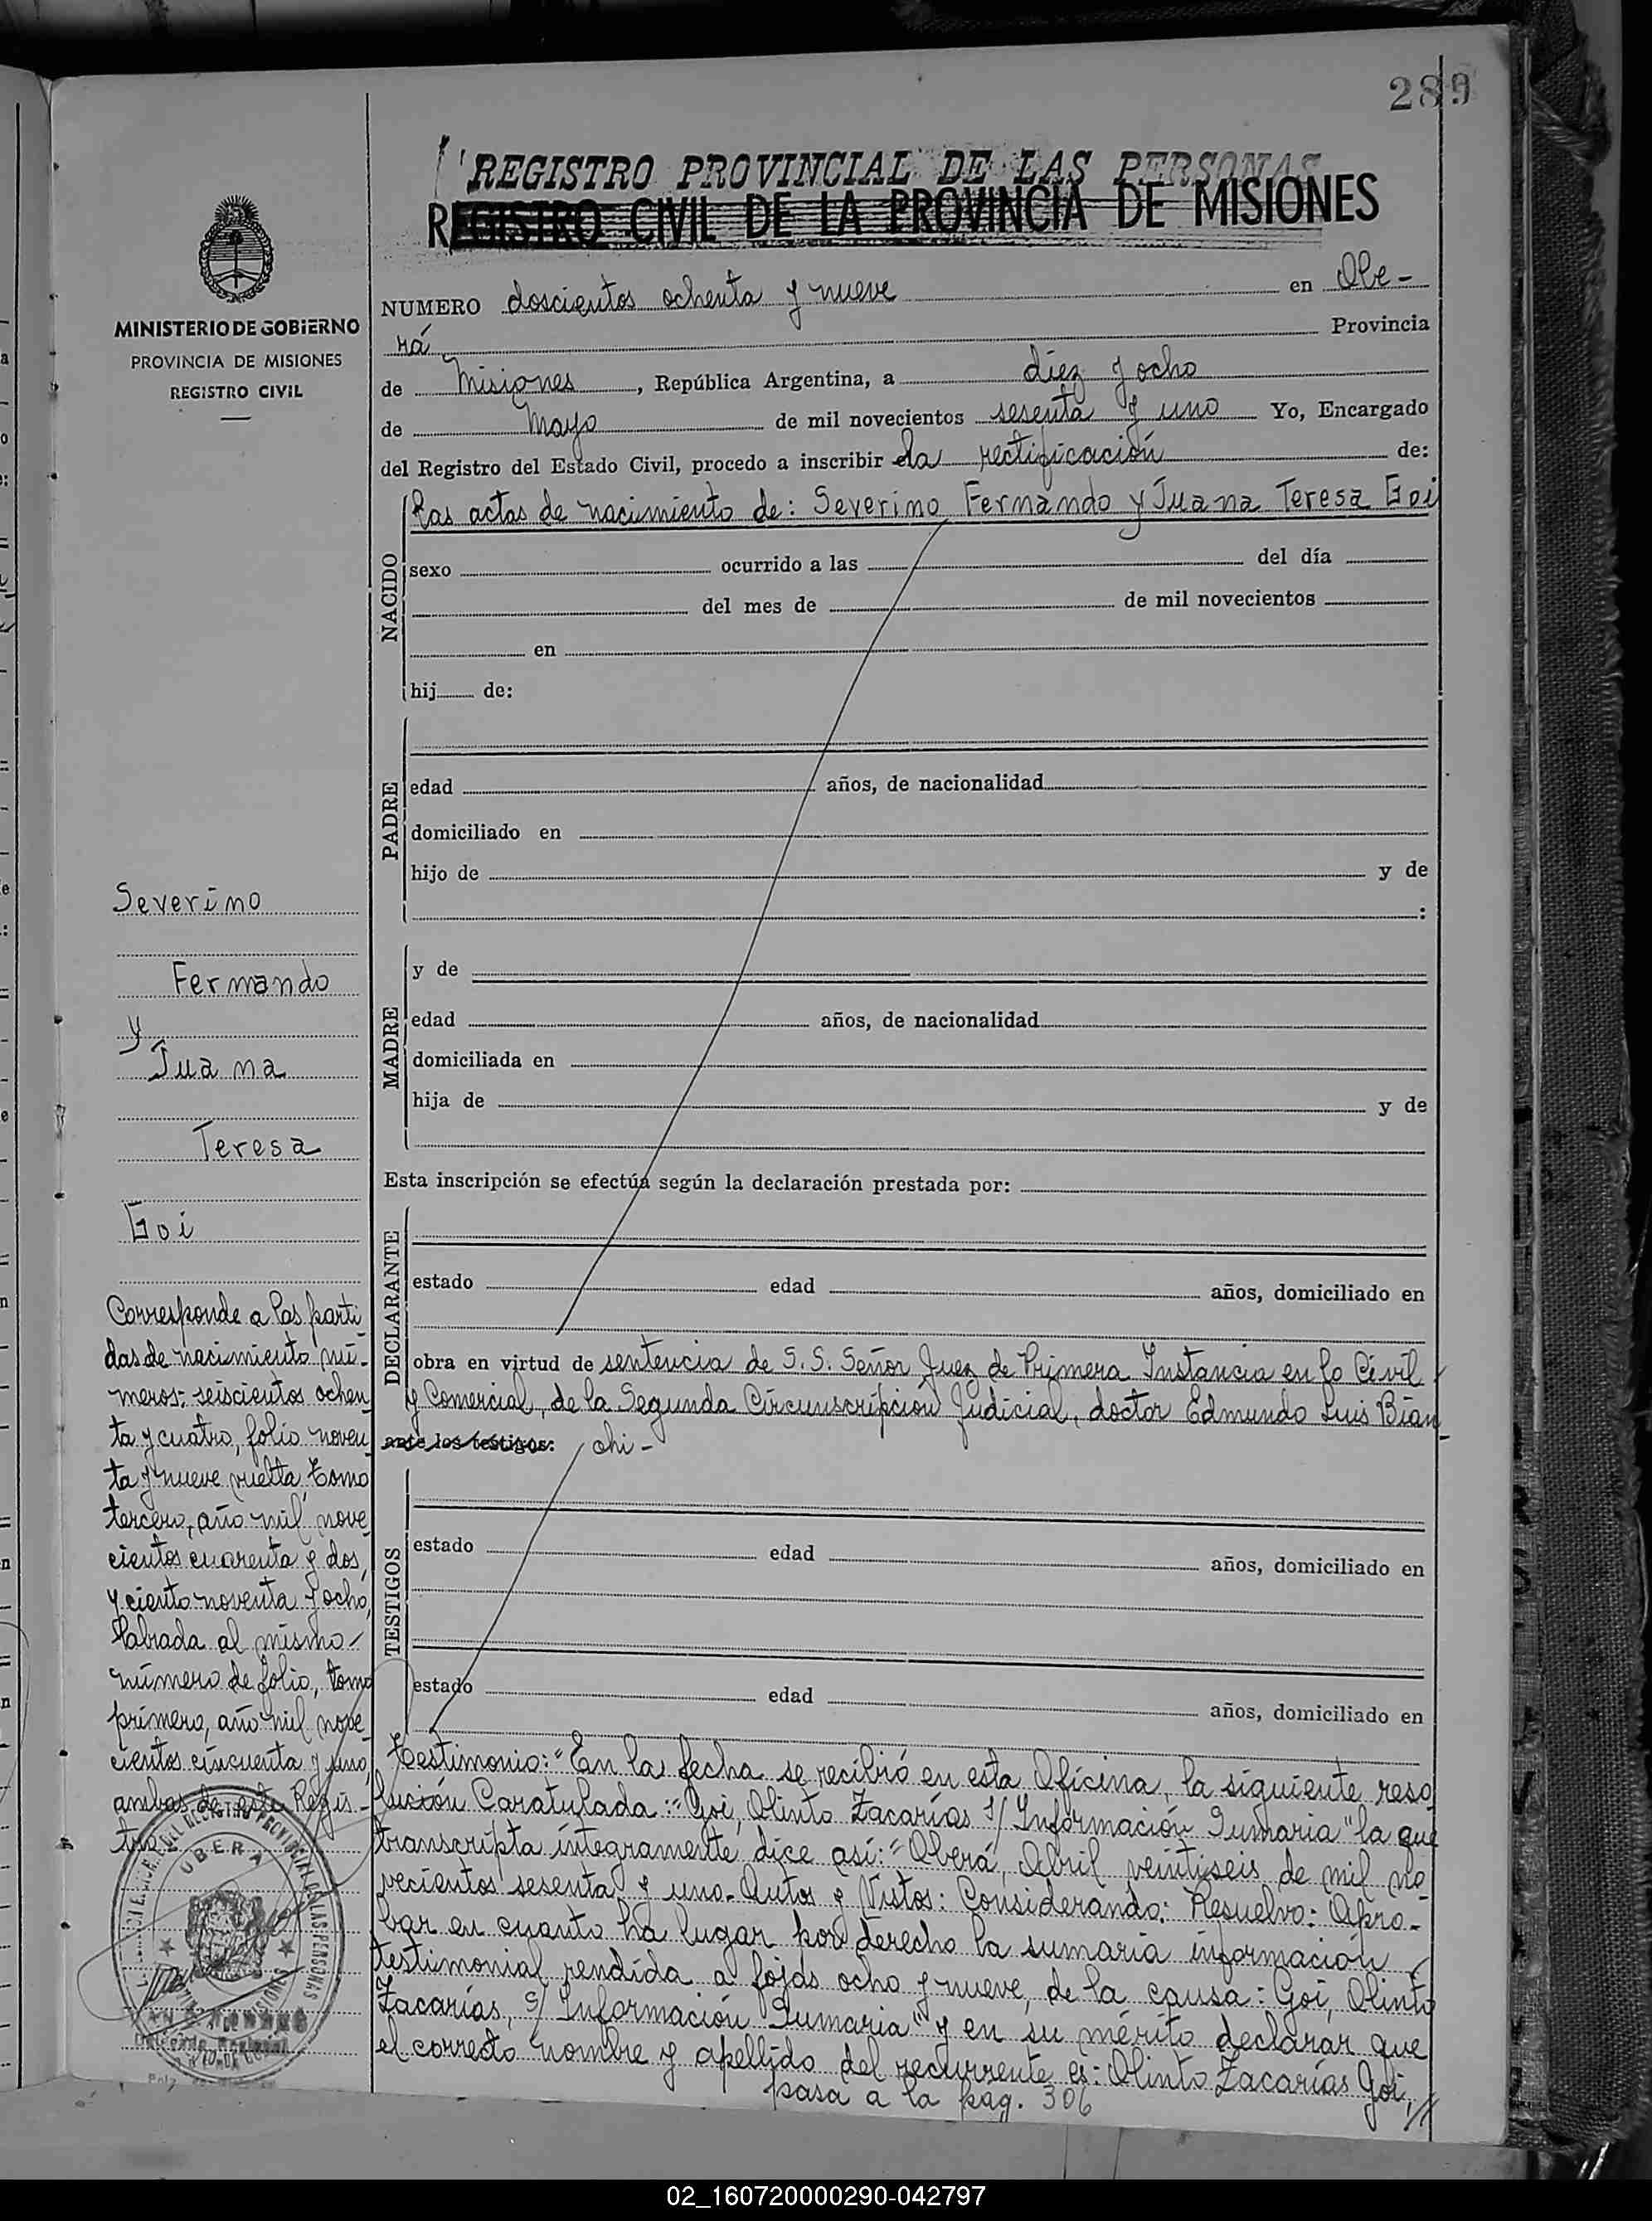 289
REGISTRO PROVINCIAL DE LAS PERSONAS
REGISTRO CIVIL DE LA PROVINCIA DE MISIONES
MINISTERIO DE GOBIERNO
PROVINCIA DE MISIONES
REGISTRO CIVIL
NUMERO doscientos ochenta y nueve en Obe-
rá Provincia
de Misiones, República Argentina, a diez y ocho
de Mayo de mil novecientos sesenta y uno Yo, Encargado
del Registro del Estado Civil, procedo a inscribir la rectificación de:
NACIDO
las actas de nacimiento de: Severino Fernando y Juana Teresa Goi
sexo ocurrido a las del día
del mes de de mil novecientos
en
hij de:
PADRE
edad años, de nacionalidad
domiciliado en
hijo de y de
:
MADRE
y de
edad años, de nacionalidad
domiciliada en
hija de y de
Esta inscripción se efectúa según la declaración prestada por:
DECLARANTE
estado edad años, domiciliado en
obra en virtud de sentencia de S. S. Señor Juez de Primera Instancia en lo Civil
y Comercial, de la Segunda Circunscripción Judicial, doctor Edmundo Luis Bian
ante los testigos: chi-
TESTIGOS
estado edad años, domiciliado en
estado edad años, domiciliado en
Testimonio: "En la fecha se recibió en esta Oficina, la siguiente reso
lución Caratulada: "Goi, Olinto Zacarías s/ Información Sumaria" la que
transcripta íntegramente dice así: "Oberá, Abril veintiseis de mil no
vecientos sesenta y uno. Autos y Vistos: Considerando: Resuelvo: Apro-
bar en cuanto ha lugar por derecho la sumaria información
testimonial rendida a fojas ocho y nueve, de la causa: Goi, Olinto
Zacarías, s/ Información Sumaria" y en su mérito declarar que
el correcto nombre y apellido del recurrente es: Olinto Zacarías Goi, //
pasa a la pag. 306
Severino
Fernando
y
Juana
Teresa
Goi
Corresponde a las parti
das de nacimiento nú-
meros: seiscientos ochen
ta y cuatro, folio noven
ta y nueve vuelta, tomo
tercero, año mil nove
cientos cuarenta y dos,
y ciento noventa y ocho,
labrada al mismo
número de folio, tomo
primero, año mil nove
cientos cincuenta y uno,
ambas de este Regis-
tro
OBERA
02_160720000290-042797